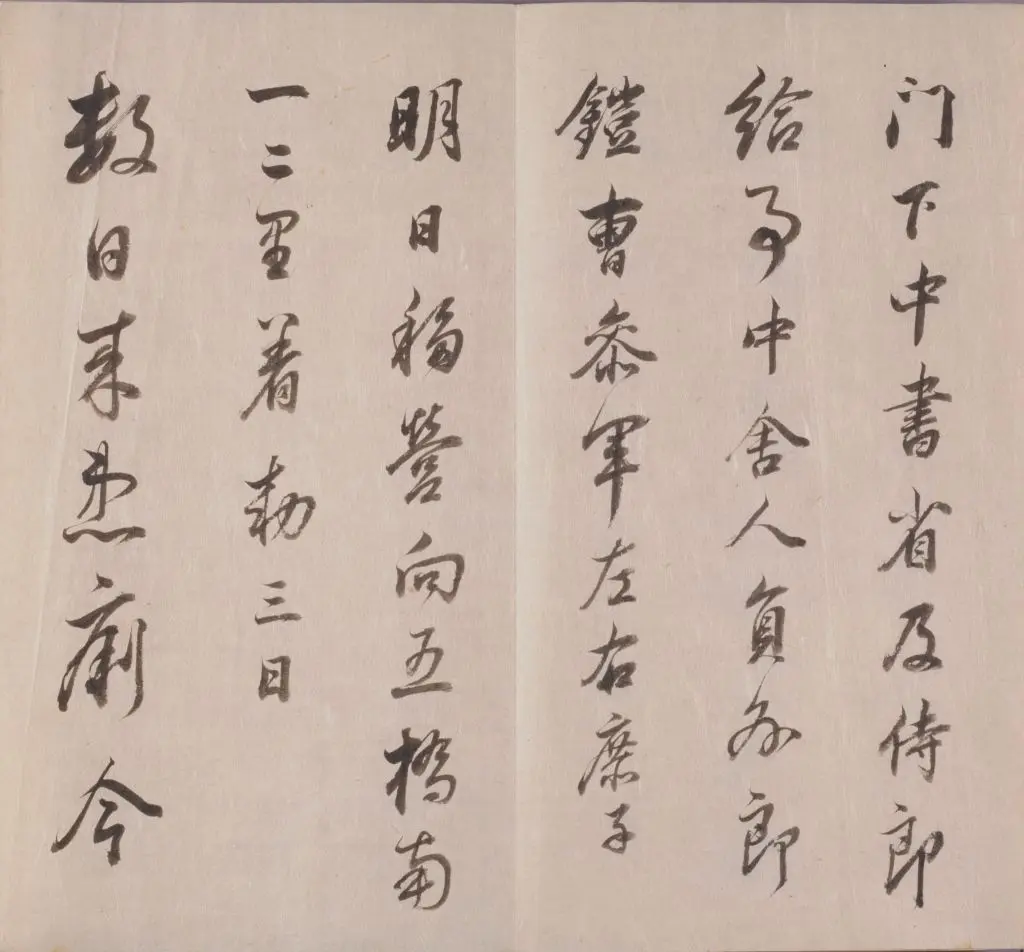 门下中書省及侍郎
給事中舍人員外郎
鎧曹叅軍左右庶子
明日移營向五橋南
一二里着勅三日
數日来患痢今